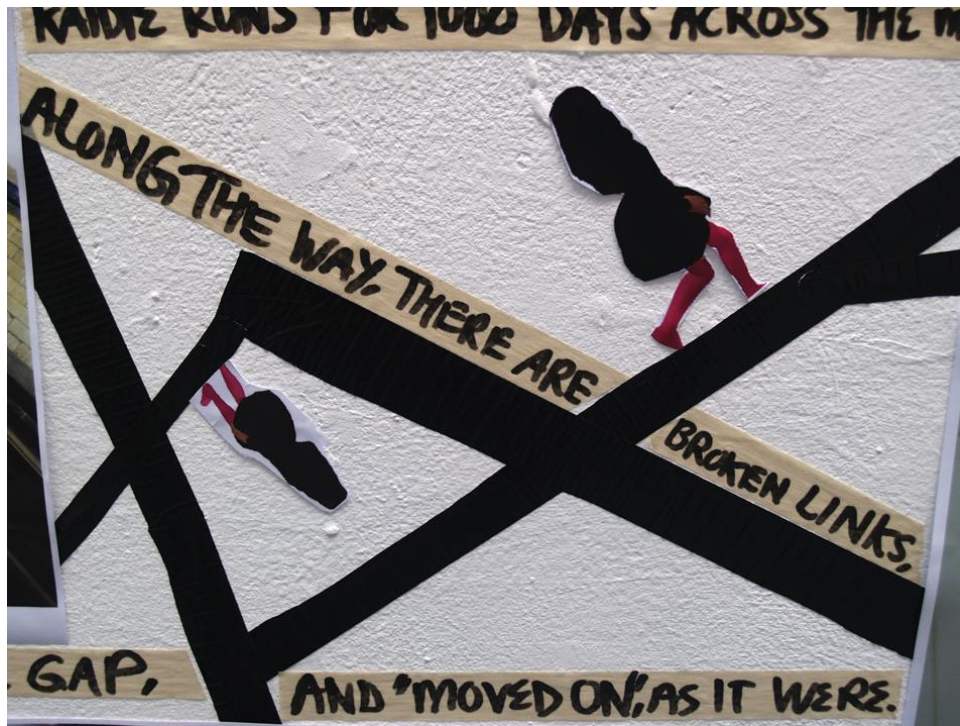 KAIDIE RUNS FOR 1000 DAYS ACROSS THE
ALONG THE WAY, THERE ARE
BROKEN LINKS,
GAP,
AND "MOVED ON", AS IT WERE.